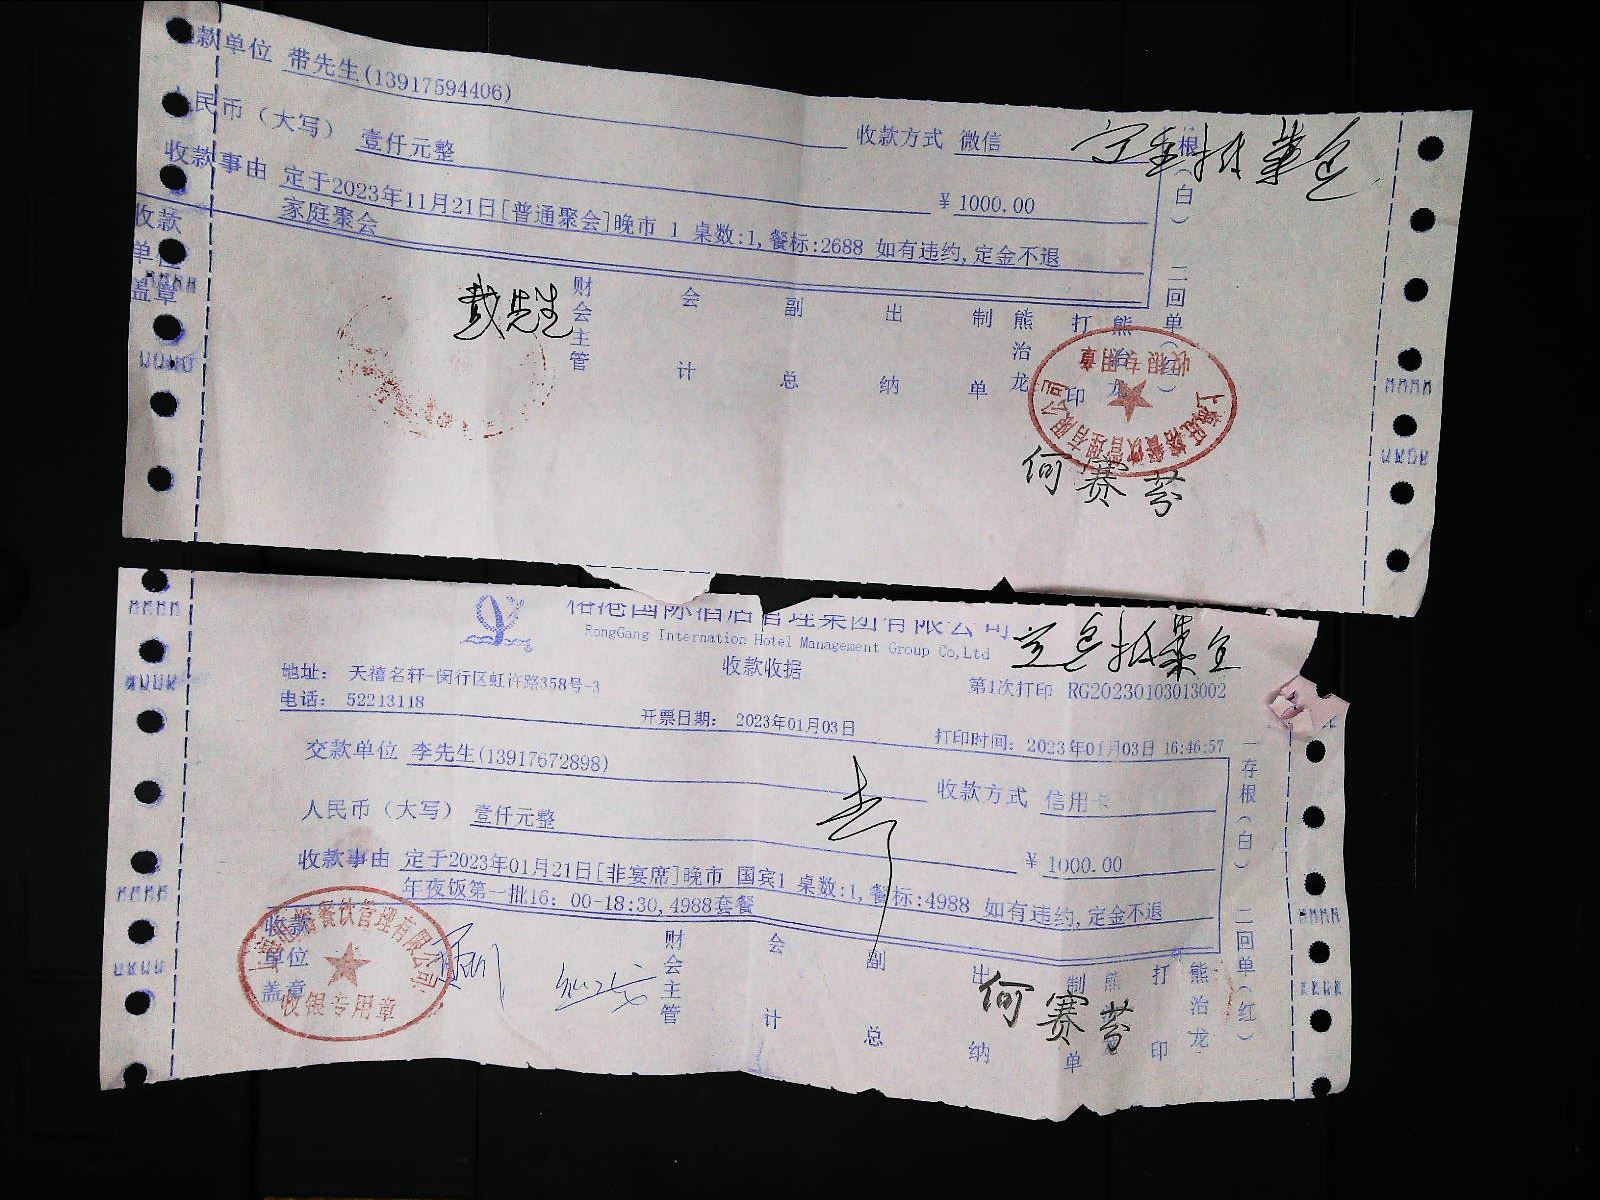 交款单位 带先生(13917594406)
收款方式 微信
定金抵菜金
人民币（大写） 壹仟元整
￥1000.00
收款事由 定于2023年11月21日[普通聚会]晚市 1 桌数:1,餐标:2688 如有违约,定金不退
家庭聚会
根（白） 二回单（红）
收款
单位
盖章
戴先生
财会主管 会计 副总 出纳 制单 熊治龙 打印 熊治龙
上海旺裕餐饮管理有限公司
收银专用章
何赛芬
裕港国际酒店管理集团有限公司
RongGang Internation Hotel Management Group Co,Ltd
定金抵菜金
收款收据
地址： 天禧名轩-闵行区虹许路358号-3
第1次打印 RG20230103013002
电话： 52213118
开票日期： 2023年01月03日
打印时间：2023年01月03日 16:46:57
交款单位 李先生(13917672898)
收款方式 信用卡
人民币（大写） 壹仟元整
￥1000.00
收款事由 定于2023年01月21日[非宴席]晚市 国宾1 桌数:1,餐标:4988 如有违约,定金不退
年夜饭第一批16：00-18:30,4988套餐
一存根（白） 二回单（红）
收款
单位
盖章
餐饮管理有限公司
收银专用章
财会主管 会计 副总 出纳 制单 熊 打印 熊治龙
何赛芬